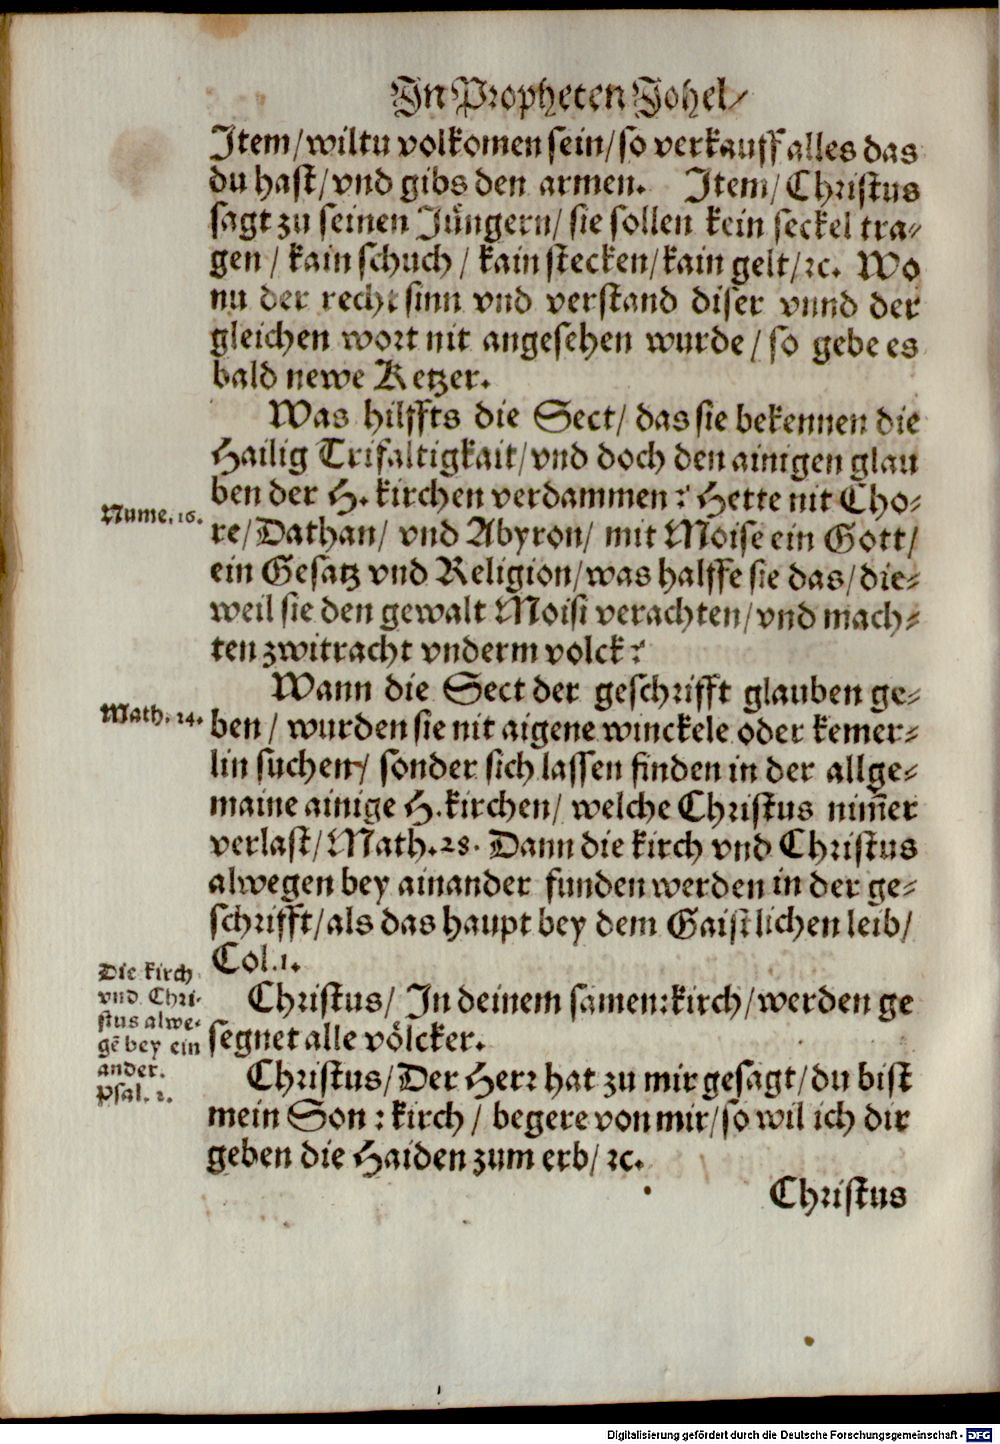 In Propheten Johel/
Item/ wiltu volkomen sein/ so verkauff alles das
du hast/ vnd gibs den armen. Item/ Christus
sagt zu seinen Jüngern/ sie sollen kein seckel tra-
gen/ kain schuch/ kain stecken/ kain gelt/ ꝛc. Wo
nu der recht sinn vnd verstand diser vnnd der
gleichen wort nit angesehen wurde/ so gebe es
bald newe Ketzer.
Was hilffts die Sect/ das sie bekennen die
Hailig Trifaltigkait/ vnd doch den ainigen glau
ben der H. kirchen verdammen? Hette nit Cho-
Nume. 16.
re/ Dathan/ vnd Abyron/ mit Moise ein Gott/
ein Gesatz vnd Religion/ was halffe sie das/ die-
weil sie den gewalt Moisi verachten/ vnd mach-
ten zwitracht vnderm volck?
Wann die Sect der geschrifft glauben ge-
Math. 24.
ben/ wurden sie nit aigene winckele oder kemer-
lin suchen/ sonder sich lassen finden in der allge-
maine ainige H. kirchen/ welche Christus nim̄er
verlast/ Math. 28. Dann die kirch vnd Christus
alwegen bey ainander funden werden in der ge-
schrifft/ als das haupt bey dem Gaistlichen leib/
Col. 1.
Die kirch
vnd Chri-
stus alwe-
gē bey ein
ander.
Psal. 2.
Christus/ In deinem samen: kirch/ werden ge
segnet alle völcker.
Christus/ Der Herr hat zu mir gesagt/ du bist
mein Son: kirch/ begere von mir/ so wil ich dir
geben die Haiden zum erb/ ꝛc.
Christus
Digitalisierung gefördert durch die Deutsche Forschungsgemeinschaft - DFG